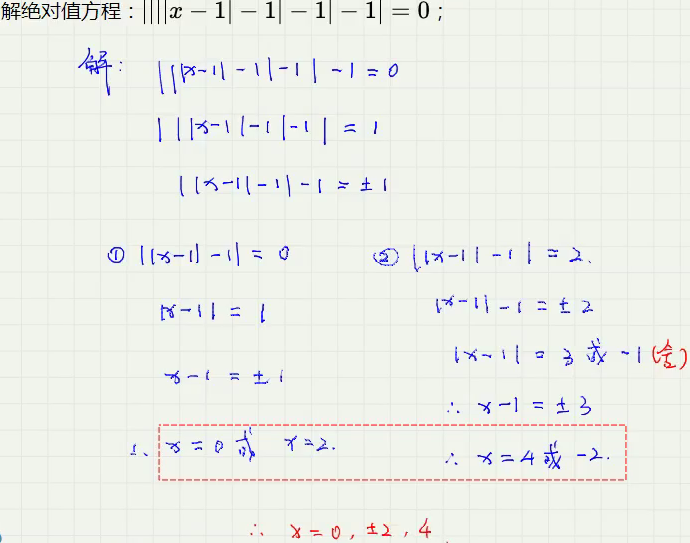 解绝对值方程：||||x − 1| − 1| − 1| − 1| = 0；
解： |||x-1|-1|-1|-1=0
|||x-1|-1|-1| = 1
||x-1|-1|-1=±1
① ||x-1|-1|=0
|x-1| = 1
x-1 = ±1
∴ x=0 或 x=2.
② ||x-1|-1|=2.
|x-1|-1=±2
|x-1|=3 或 -1(舍)
∴ x-1=±3
∴ x=4 或 -2.
∴ x=0, ±2, 4